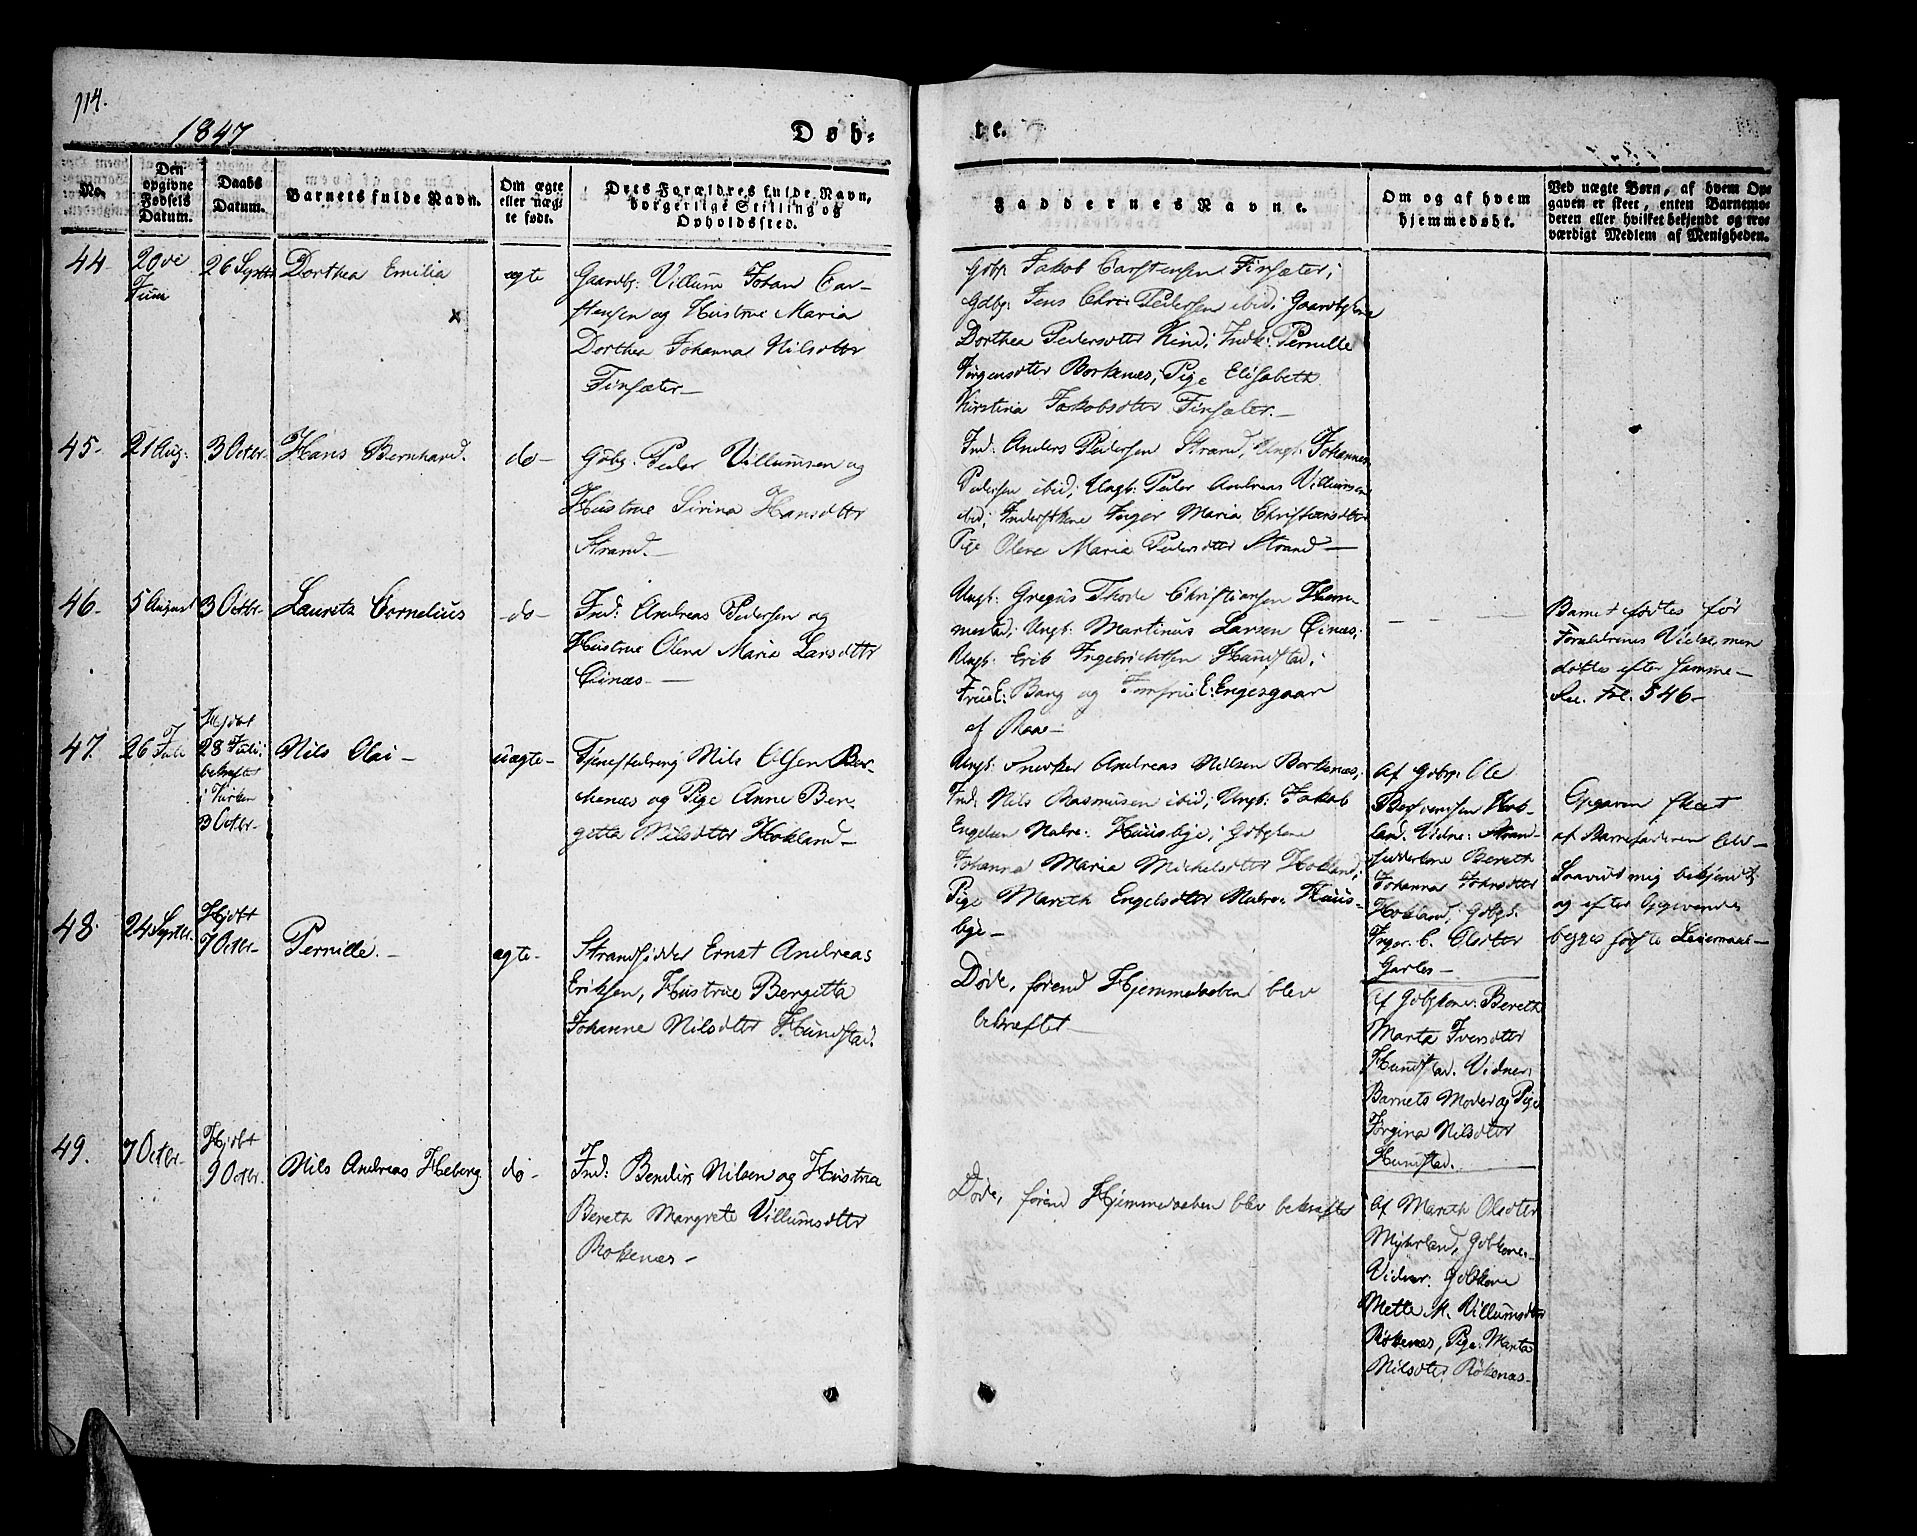 114.
1847
Døb-
te.
No.
Den
opgivne
Fødsels
Datum.
Daabs
Datum.
Barnets fulde Navn.
Om ægte
eller uæg-
te født.
Dets Forældres fulde Navn,
borgerlige Stilling og
Opholdssted.
Faddernes Navne.
Om og af hvem
hjemmedøbt.
Ved uægte Børn, af hvem Op-
gaven er skeet, enten Barnemo-
deren eller hvilket bekjendt og tro-
værdigt Medlem af Menigheden.
44
20de
Juni
26 Septbr
Dorthea Emilia
x
ægte
Gaardbr: Villum Johan Car-
stensen og Hustrue Maria
Dorthea Johanna Nilsdtter
Finsæter-
Gdbr Jakob Carstensen Finsæter;
Gdbr: Jens Chr: Pedersen ibid; Gaardbrkone
Dorthea Pedersdtter Kind; Indk: Pernille
Jørgensdtter Borkenæs; Pige Elisabeth
Kirstina Jakobsdtter Finsæter.-
45-
21 Aug:
3 Octbr-
Hans Bernhard.
do-
Gdbr: Peder Villumsen og
Hustrue Sirina Hansdtter
Strand.-
Ind: Anders Pedersen Strand, Ungk: Johannes
Pedersen ibid; Ungk: Peder Andreas Villumsen
ibid; Inderstkone Inger Maria Christiansdtter
Pige Olene Maria Pedersdtter Strand-
46-
5 August
3 Octbr-
Lauritz Cornelius
do-
Ind: Andreas Pedersen og
Hustrue Olena Maria Larsdtter
Einæs-
Ungk: Gregus Thode Christiansen Hem-
mestad; Ungk: Martinus Larsen Einæs;
Ungk: Erik Ingebrichtsen Hundstad;
Frue E: Bang og Jomfrue E: Engesgaar
af
Barnet fødtes før
Forældrenes Vielse, men
døbtes efter samme-
See Fol. 546-
47.
26 Juli
Hjdbt
28 Juli;
bekræftet
i Kirken
3 Octbr-
Nils Olai-
uægte-
Tjenestedreng Nils Olsen Bor-
kenæs og Pige Anne Ber-
gette Nilsdtter Hokland-
Ungk: Snedker Andreas Nilsen Borkenæs;
Ind: Nils Rasmusen ibid; Ungk: Jakob
Engelsen Nabre: Huusbye; Gdbrkone
Johanna Maria Michelsdtter Hokland;
Pige Mareth Engelsdtter Nabre: Huus-
bye-
Af Gdbr: Ole
Hok-
land. Vidne: Stran-
sidderkone Bereth
Johanna Johnsdtter
Hokland; Gdbrk:
Inger C. Olsdtter
Garles-
Opgaven skeet
af Barnefaderen
mig bekjendt,
og efter Opgivendes
begges første Leiermaal-
48.
24 Septbr.
Hjdbt
7 Octbr-
Pernille.-
ægte-
Strandsidder Ernst Andreas
Eriksen, Hustrue Bergitta
Johanne Nilsdtter Hundstad.
Døde, førend Hjemmedaaben blev
bekræftet-
Af Gdbrkone: Bereth
Marta Iversdtter
Hundstad. Vidner:
Barnets Moder og Pige
Jørgina Nilsdtter
Hundstad.
49.
7 Octbr-
Hjdbt
9 Octbr.
Nils Andreas Heberg
do-
Ind: Bendix Nilsen og Hustrue
Bereth Margrete Villumsdtter
Røkenæs-
Døde, førend Hjemmedaaben blev bekræftet
Af Mareth Olsdtter
Myhrland, Gdbkone-
Vidner: Gdbkone
Mette M. Villumsdtter
Røkenæs, Pige: Marta
Nilsdtter Røkenæs-